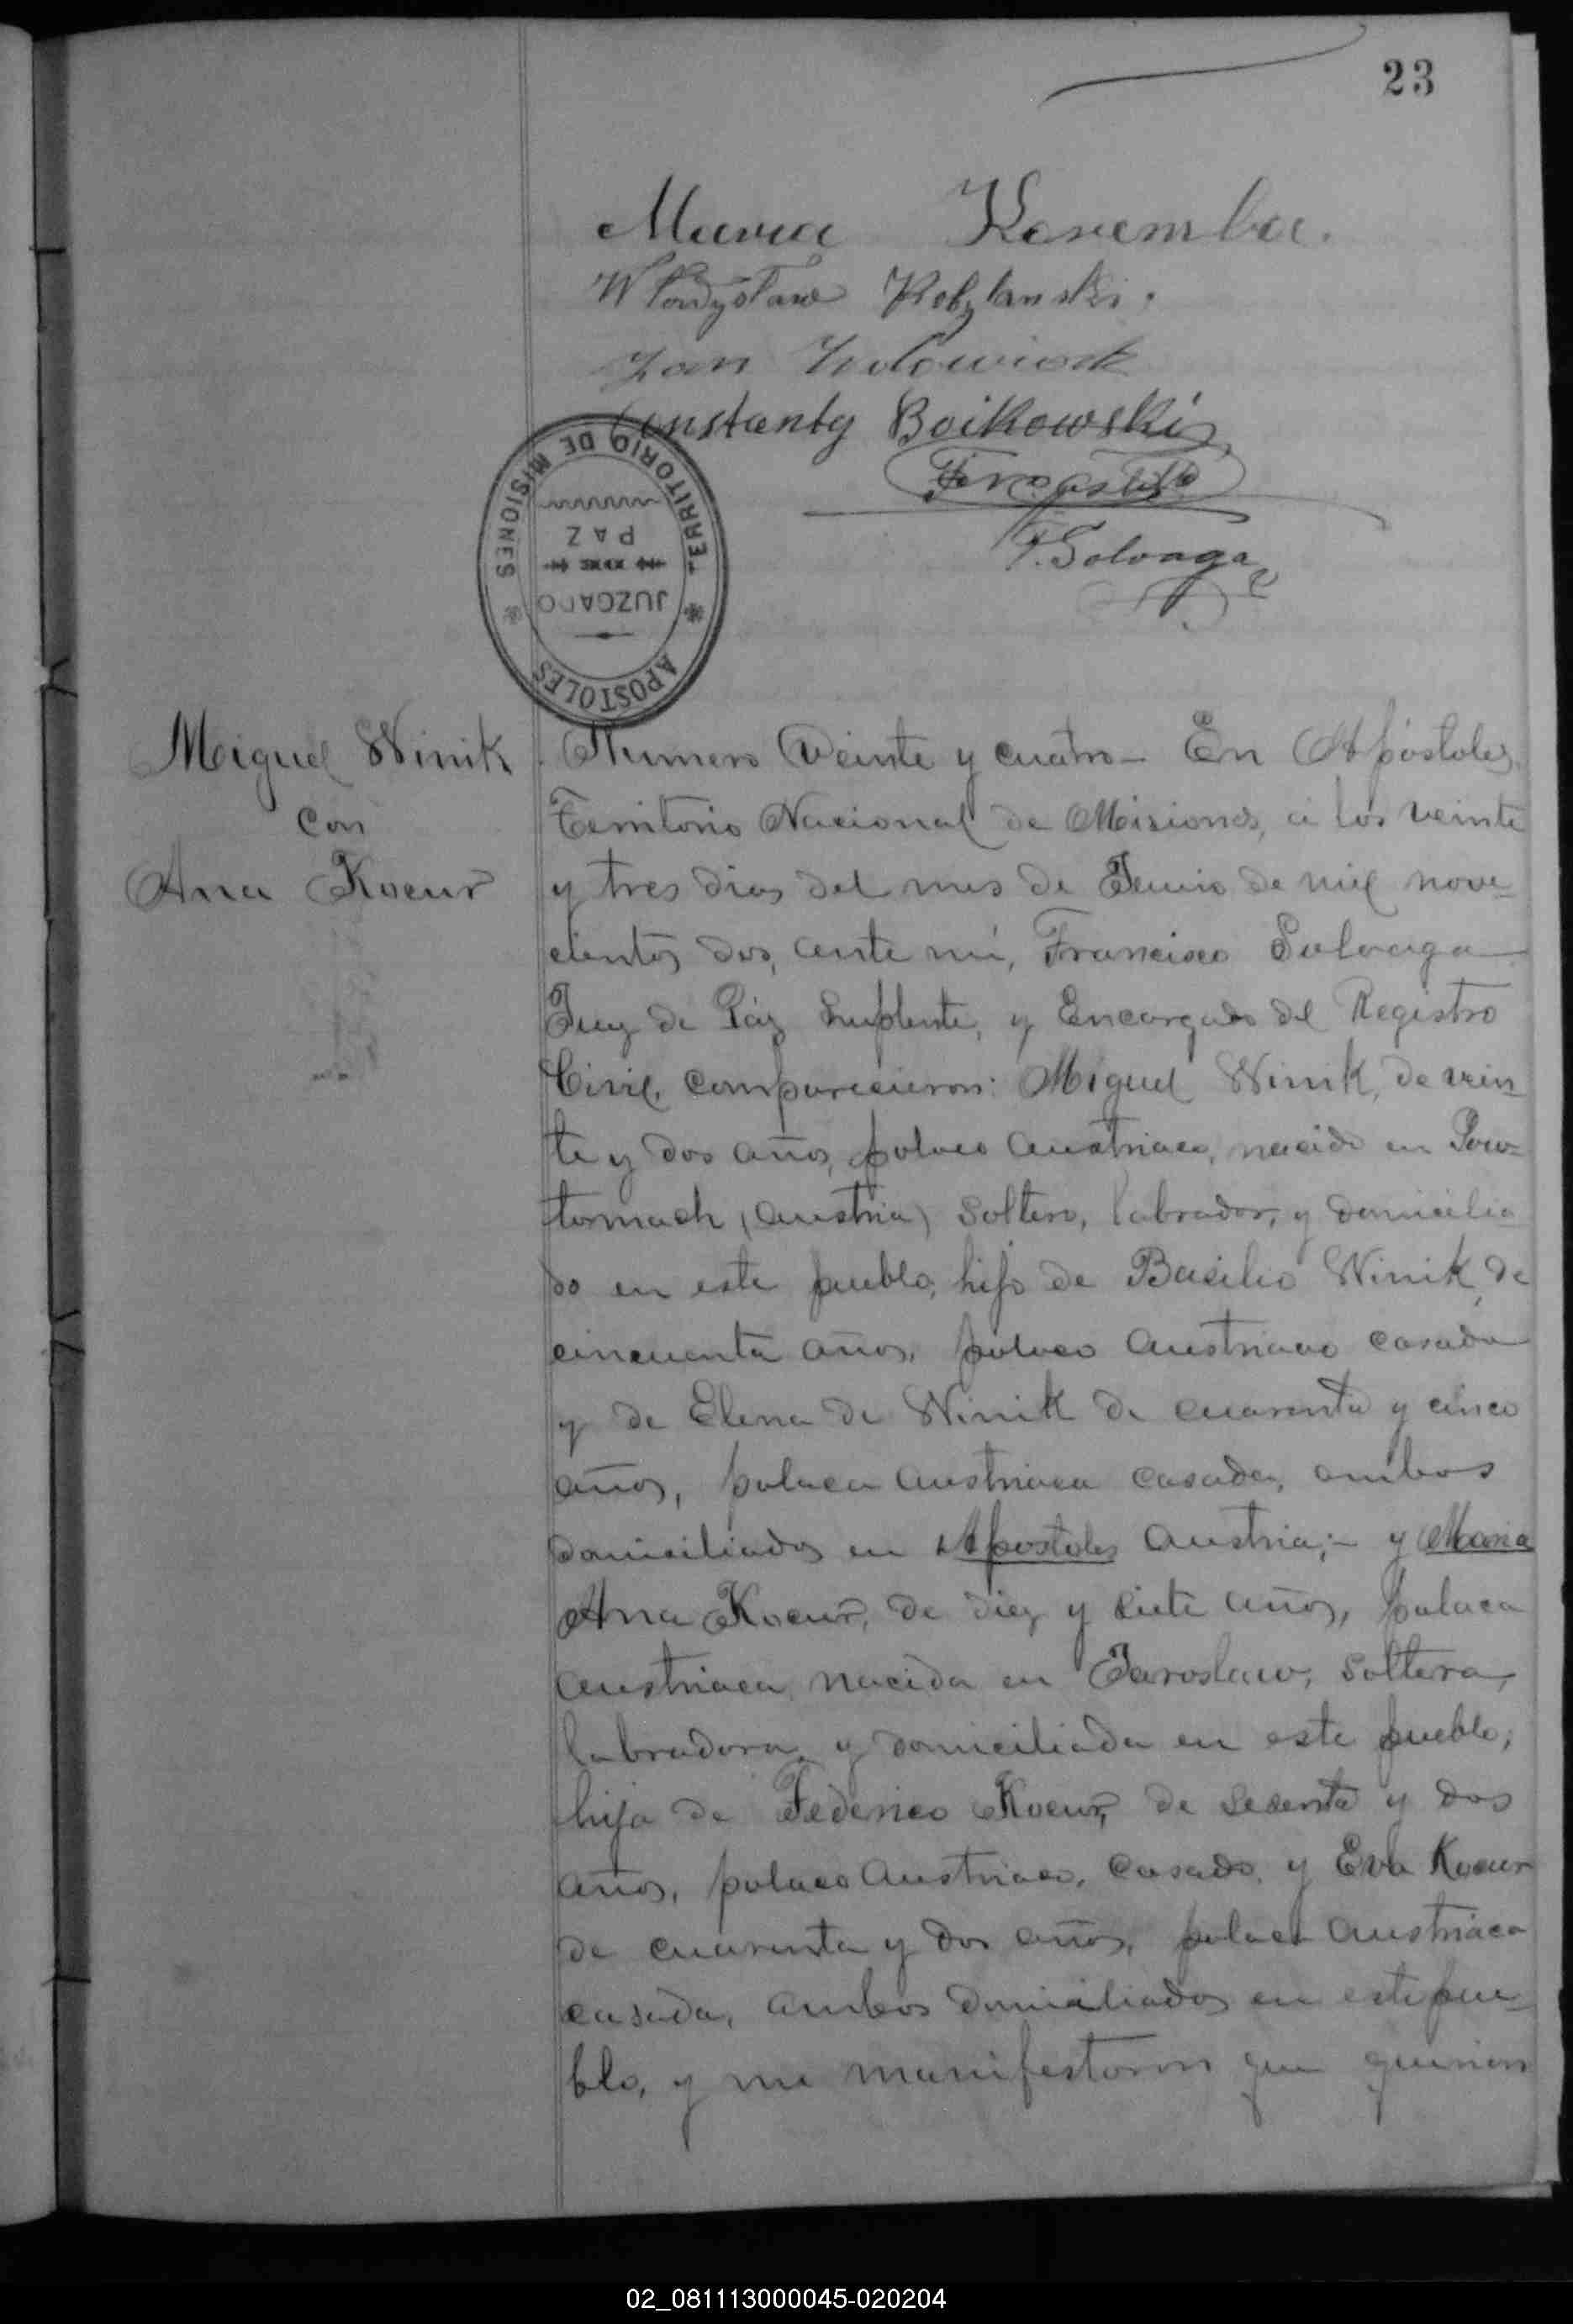 23
Maria Karemba.
Władysław Kobylanski.
Jan
Constanty Boikowski
F. Solvaga
TERRITORIO DE MISIONES
PAZ
JUZGADO
APOSTOLES
Miguel Winik
con
Ana Kocur
Numero Veinte y cuatro - En Apóstoles,
Territorio Nacional de Misiones, á los veinte
y tres dias del mes de Junio de mil nove-
cientos dos, ante mi, Francisco Solvaga
Juez de Páz Suplente, y Encargado del Registro
Civil, comparecieron: Miguel Winik, de vein-
te y dos años, polaco austriaco, nacido en Pow-
tormach (Austria) soltero, labrador, y domicilia
do en este pueblo, hijo de Basilio Winik, de
cincuenta años, polaco austriaco casado
y de Elena de Winik de cuarenta y cinco
años, polaca austriaca casada, ambos
domiciliados en Apostoles Austria;- y Maria
Ana Kocur, de diez y siete años, polaca
austriaca nacida en Jaroslaw, soltera,
labradora, y domiciliada en este pueblo,
hija de Federico Kocur, de sesenta y dos
años, polaco austriaco, casado, y Eva Kocur
de cuarenta y dos años, polaca austriaca
casada, ambos domiciliados en este pue-
blo, y me manifestaron que querian
02_081113000045-020204